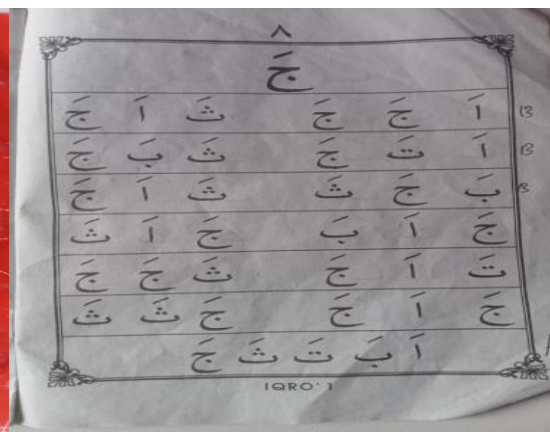 ٨
جَ
اَ جَ جَ ثَ اَ جَ
اَ تَ جَ ثَ بَ جَ
بَ جَ ثَ ثَ اَ جَ
جَ اَ بَ جَ اَ ثَ
تَ اَ جَ ثَ جَ جَ
جَ اَ جَ جَ ثَ ثَ
اَ بَ تَ ثَ جَ
IQRO' 1